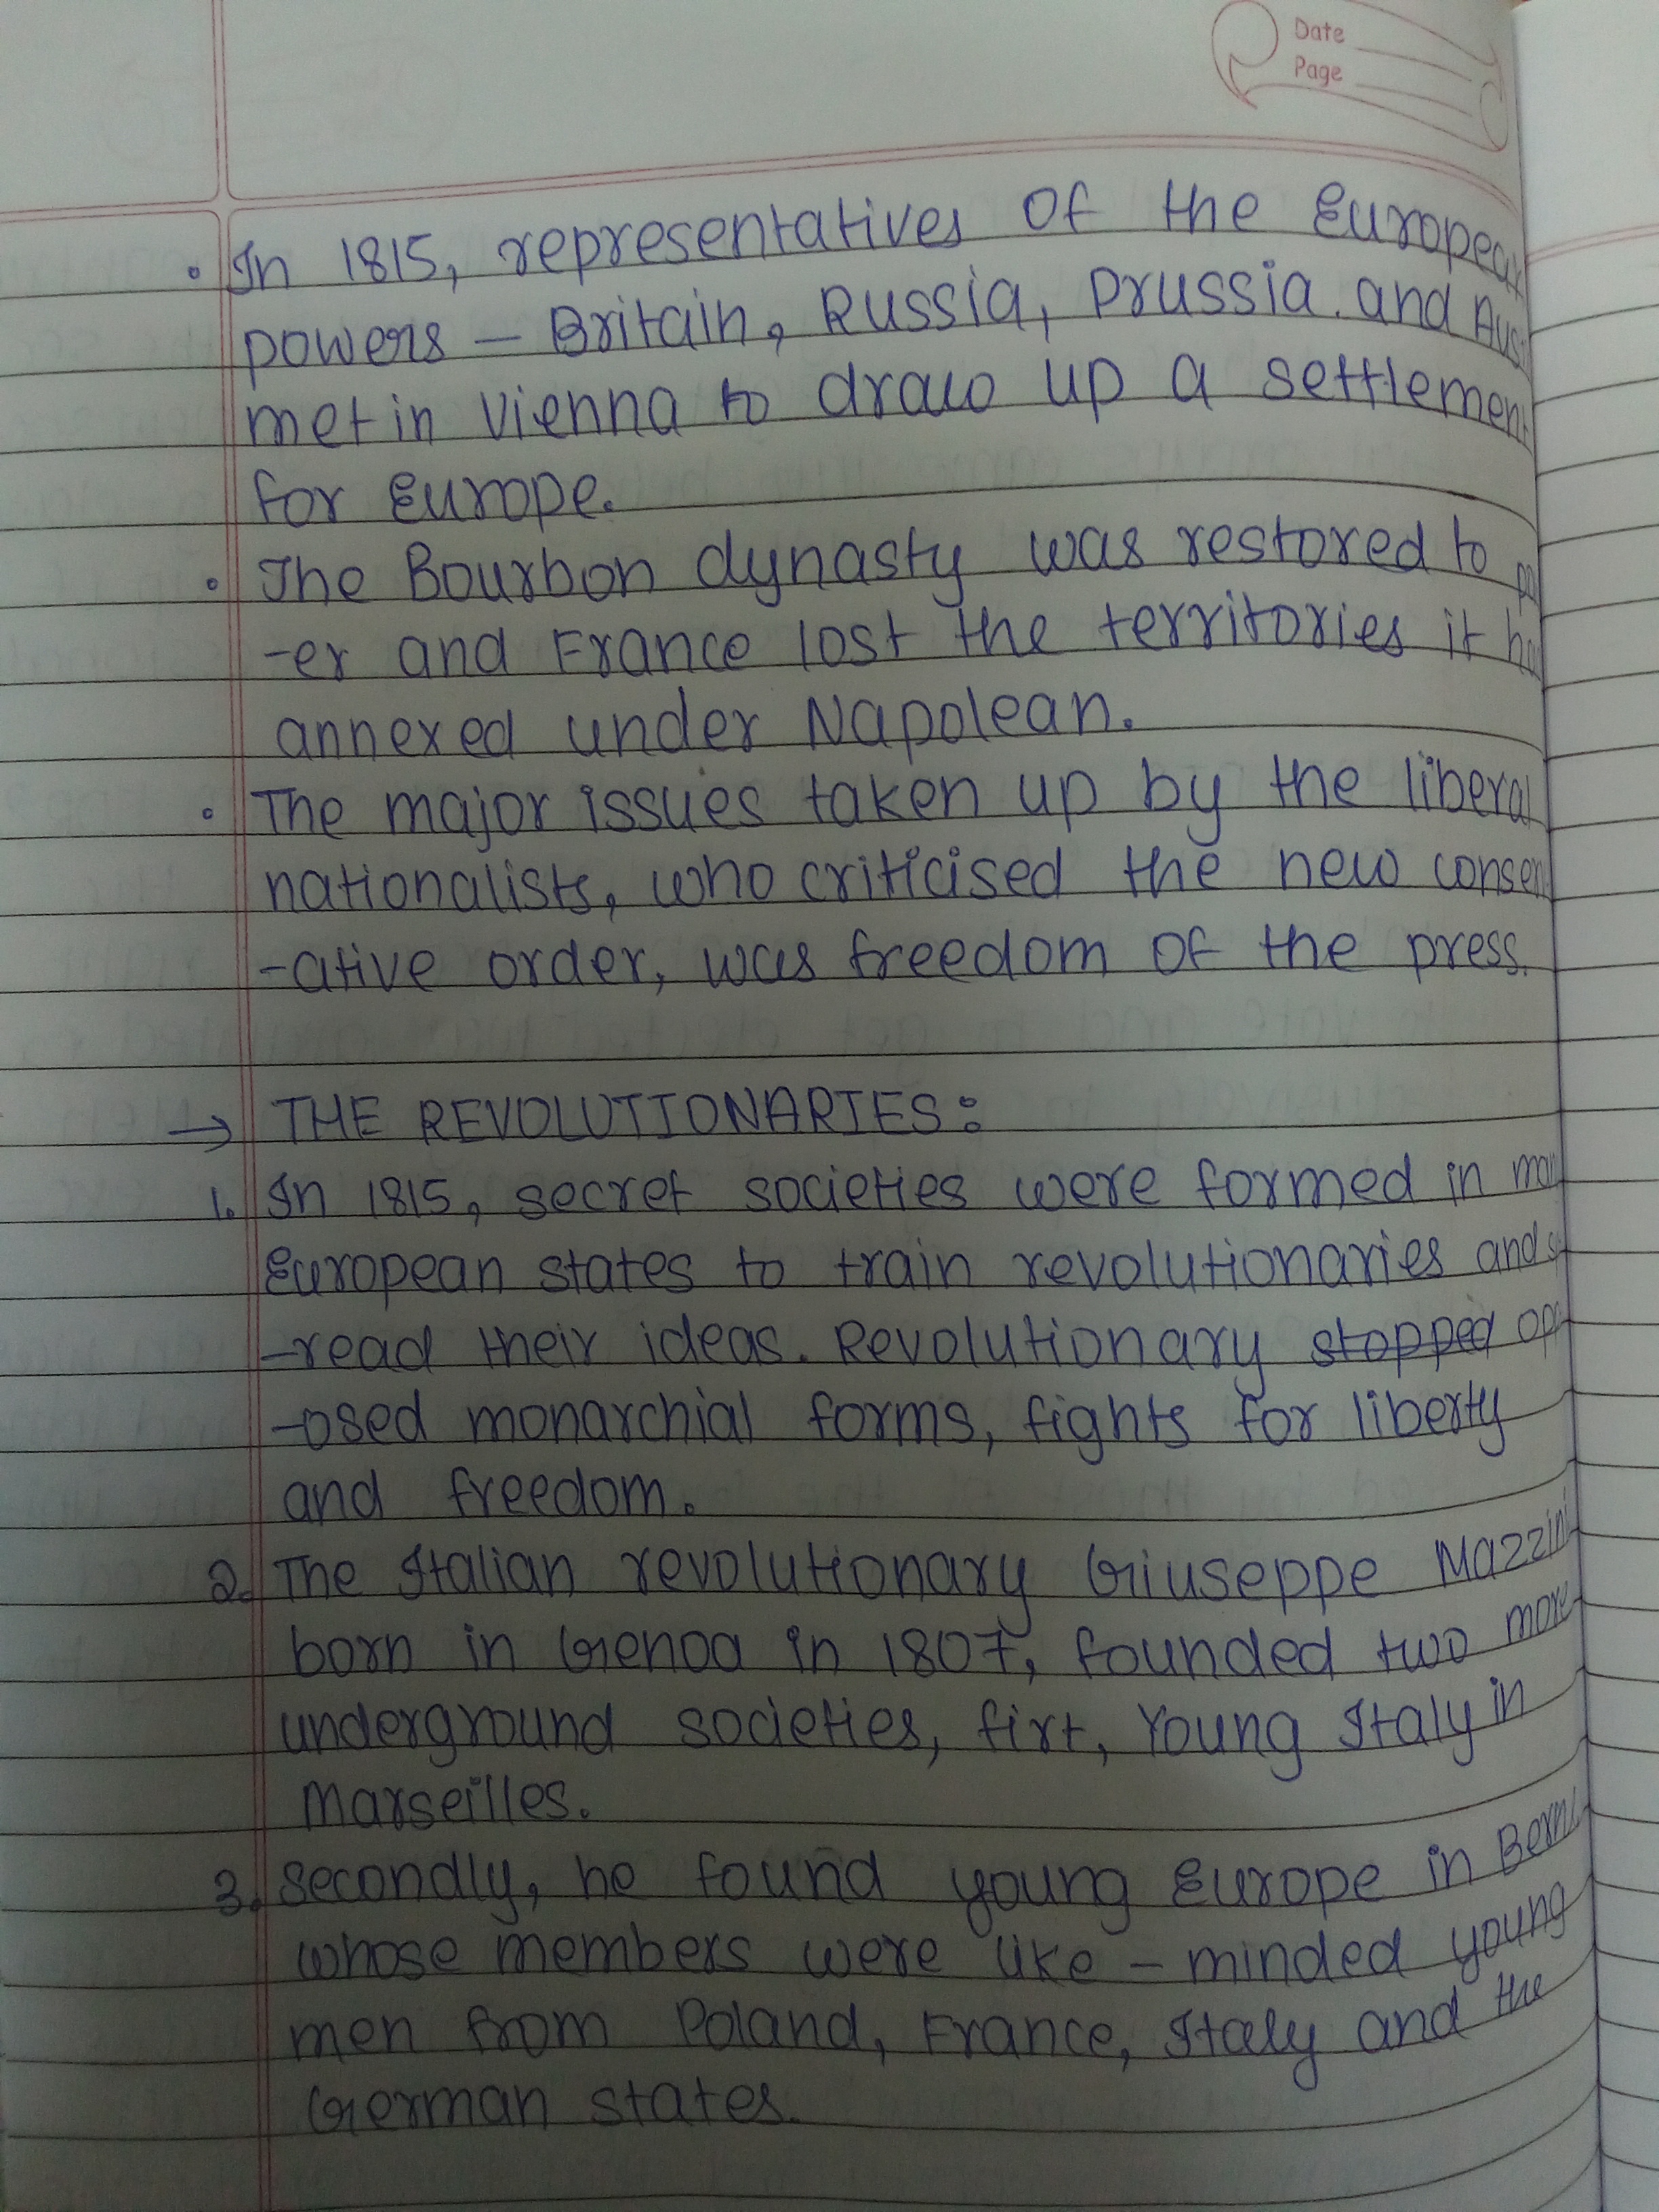 Date
Page
• In 1815, representatives of the European
powers – Britain, Russia, Prussia and
met in Vienna to draw up a settlement
for Europe.
• The Bourbon dynasty was restored to
-er and France lost the territories it
annexed under Napolean.
• The major issues taken up by the liberal
nationalists, who criticised the new conser
-ative order, was freedom of the press.
→ THE REVOLUTIONARIES:
1. In 1815, secret societies were formed in
European states to train revolutionaries and
-read their ideas. Revolutionary stopped opp
-osed monarchial forms, fights for liberty
and freedom.
2. The Italian revolutionary Giuseppe Mazzini
born in Genoa in 1807, founded two more
underground societies, firt, Young Italy in
Marseilles.
3. Secondly, he found young Europe in
whose members were like – minded young
men from Poland, France, Italy and the
German states.